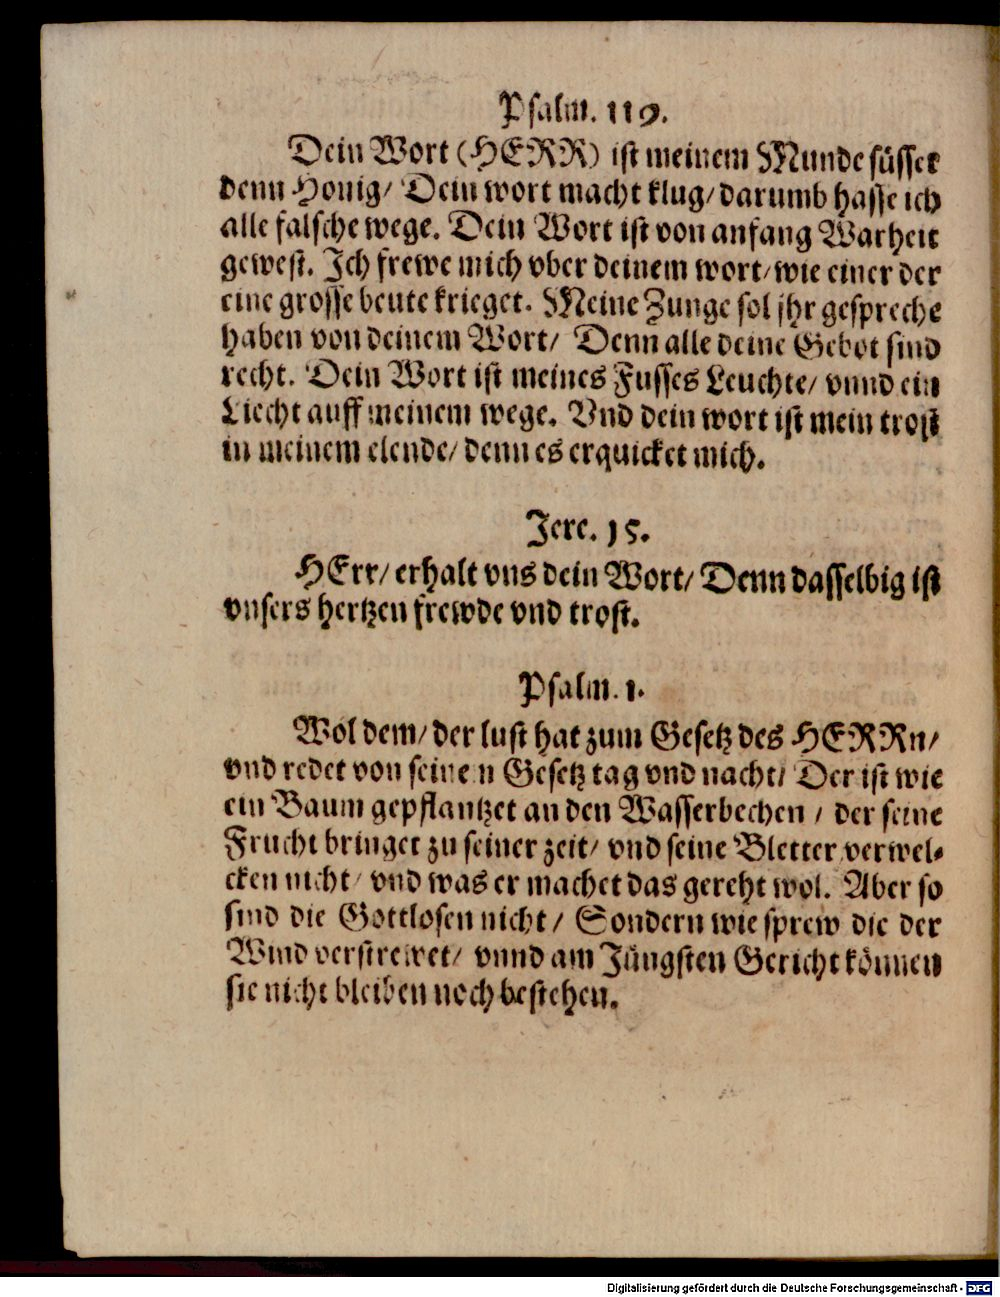 Psalm. 119.
Dein Wort (HERR) ist meinem Munde süsser
denn Honig/ Dein wort macht klug/ darumb hasse ich
alle falsche wege. Dein Wort ist von anfang Warheit
gewest. Ich frewe mich vber deinem wort/ wie einer der
eine grosse beute krieget. Meine Zunge sol jhr gespreche
haben von deinem Wort/ Denn alle deine Gebot sind
recht. Dein Wort ist meines Fusses Leuchte/ vnnd ein
Liecht auff meinem wege. Vnd dein wort ist mein trost
in meinem elende/ denn es erquicket mich.
Jere. 15.
HErr/ erhalt vns dein Wort/ Denn dasselbig ist
vnsers hertzen frewde vnd trost.
Psalm. 1.
Wol dem/ der lust hat zum Gesetz des HERRn/
vnd redet von seinem Gesetz tag vnd nacht/ Der ist wie
ein Baum gepflantzet an den Wasserbechen / der seine
Frucht bringet zu seiner zeit/ vnd seine Bletter verwel-
cken nicht/ vnd was er machet das gereht wol. Aber so
sind die Gottlosen nicht/ Sondern wie sprew die der
Wind verstrewet/ vnnd am Jüngsten Gericht können
sie nicht bleiben noch bestehen.
Digitalisierung gefördert durch die Deutsche Forschungsgemeinschaft - DFG